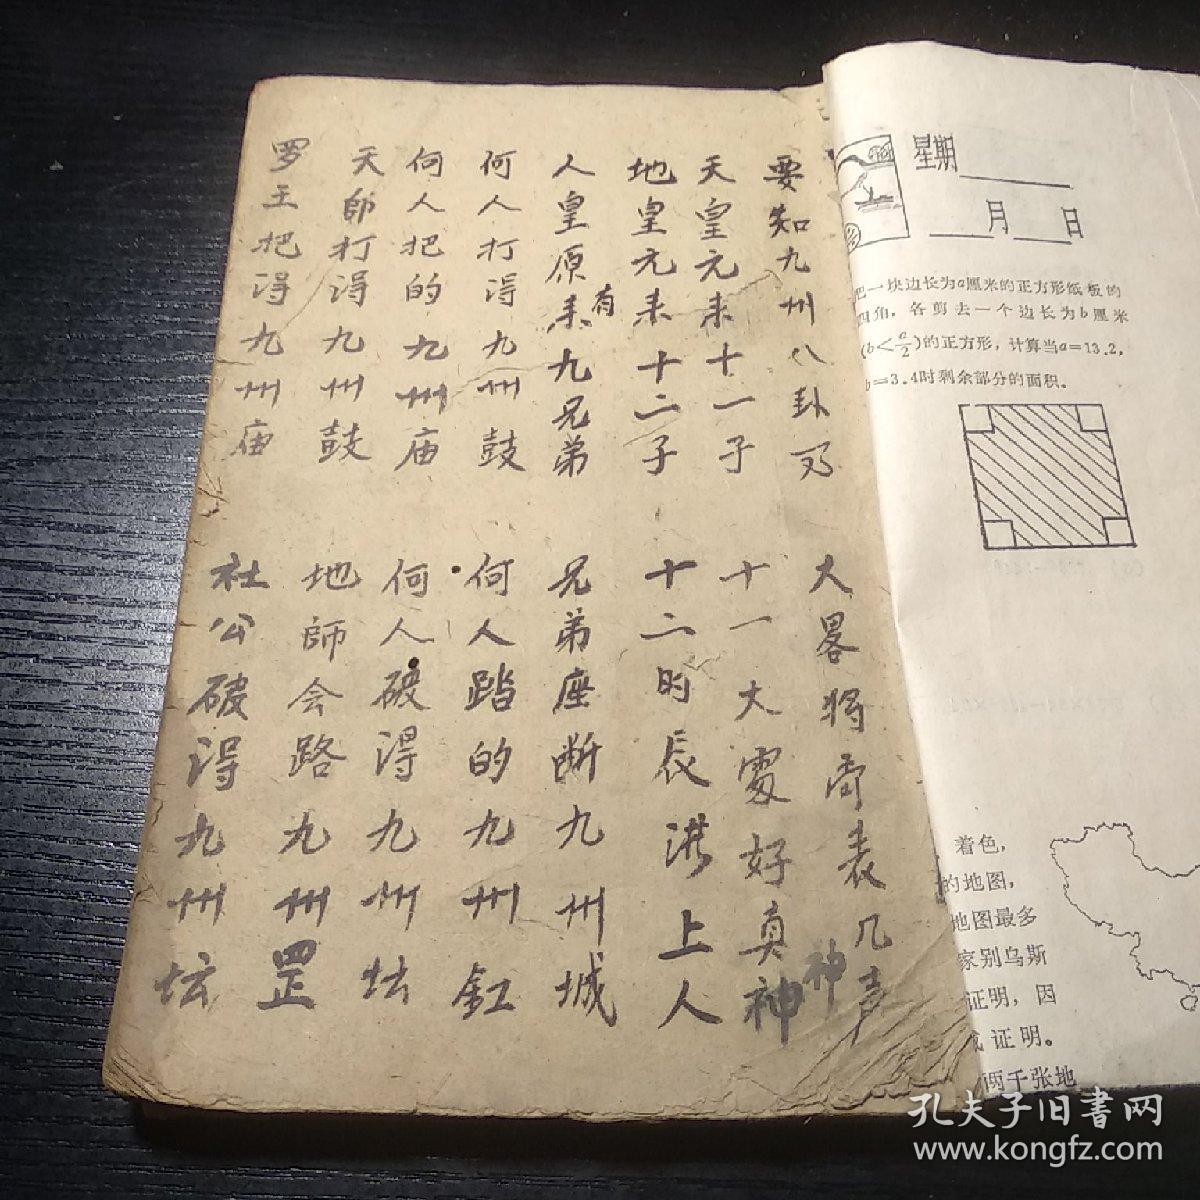 要知九州八卦歹
大畧将奇表几声
天皇元来十一子
十一大處好真神
神
地皇元来十二子
十二时辰洪上人
人皇原来有九兄弟
兄弟座断九州城
何人打得九州鼓
何人踏的九州缸
何人把的九州庙
何人破得九州坛
天師打得九州鼓
地師会路九州罡
罗王把得九州庙
社公破得九州坛
星期
月 日
把一块边长为a厘米的正方形纸板的
四角，各剪去一个边长为b厘米
(b＜a/2)的正方形，计算当a=13.2，
b=3.4时剩余部分的面积。
着色，
的地图，
地图最多
家别乌斯
证明，因
证明。
两千张地
孔夫子旧書网
www.kongfz.com